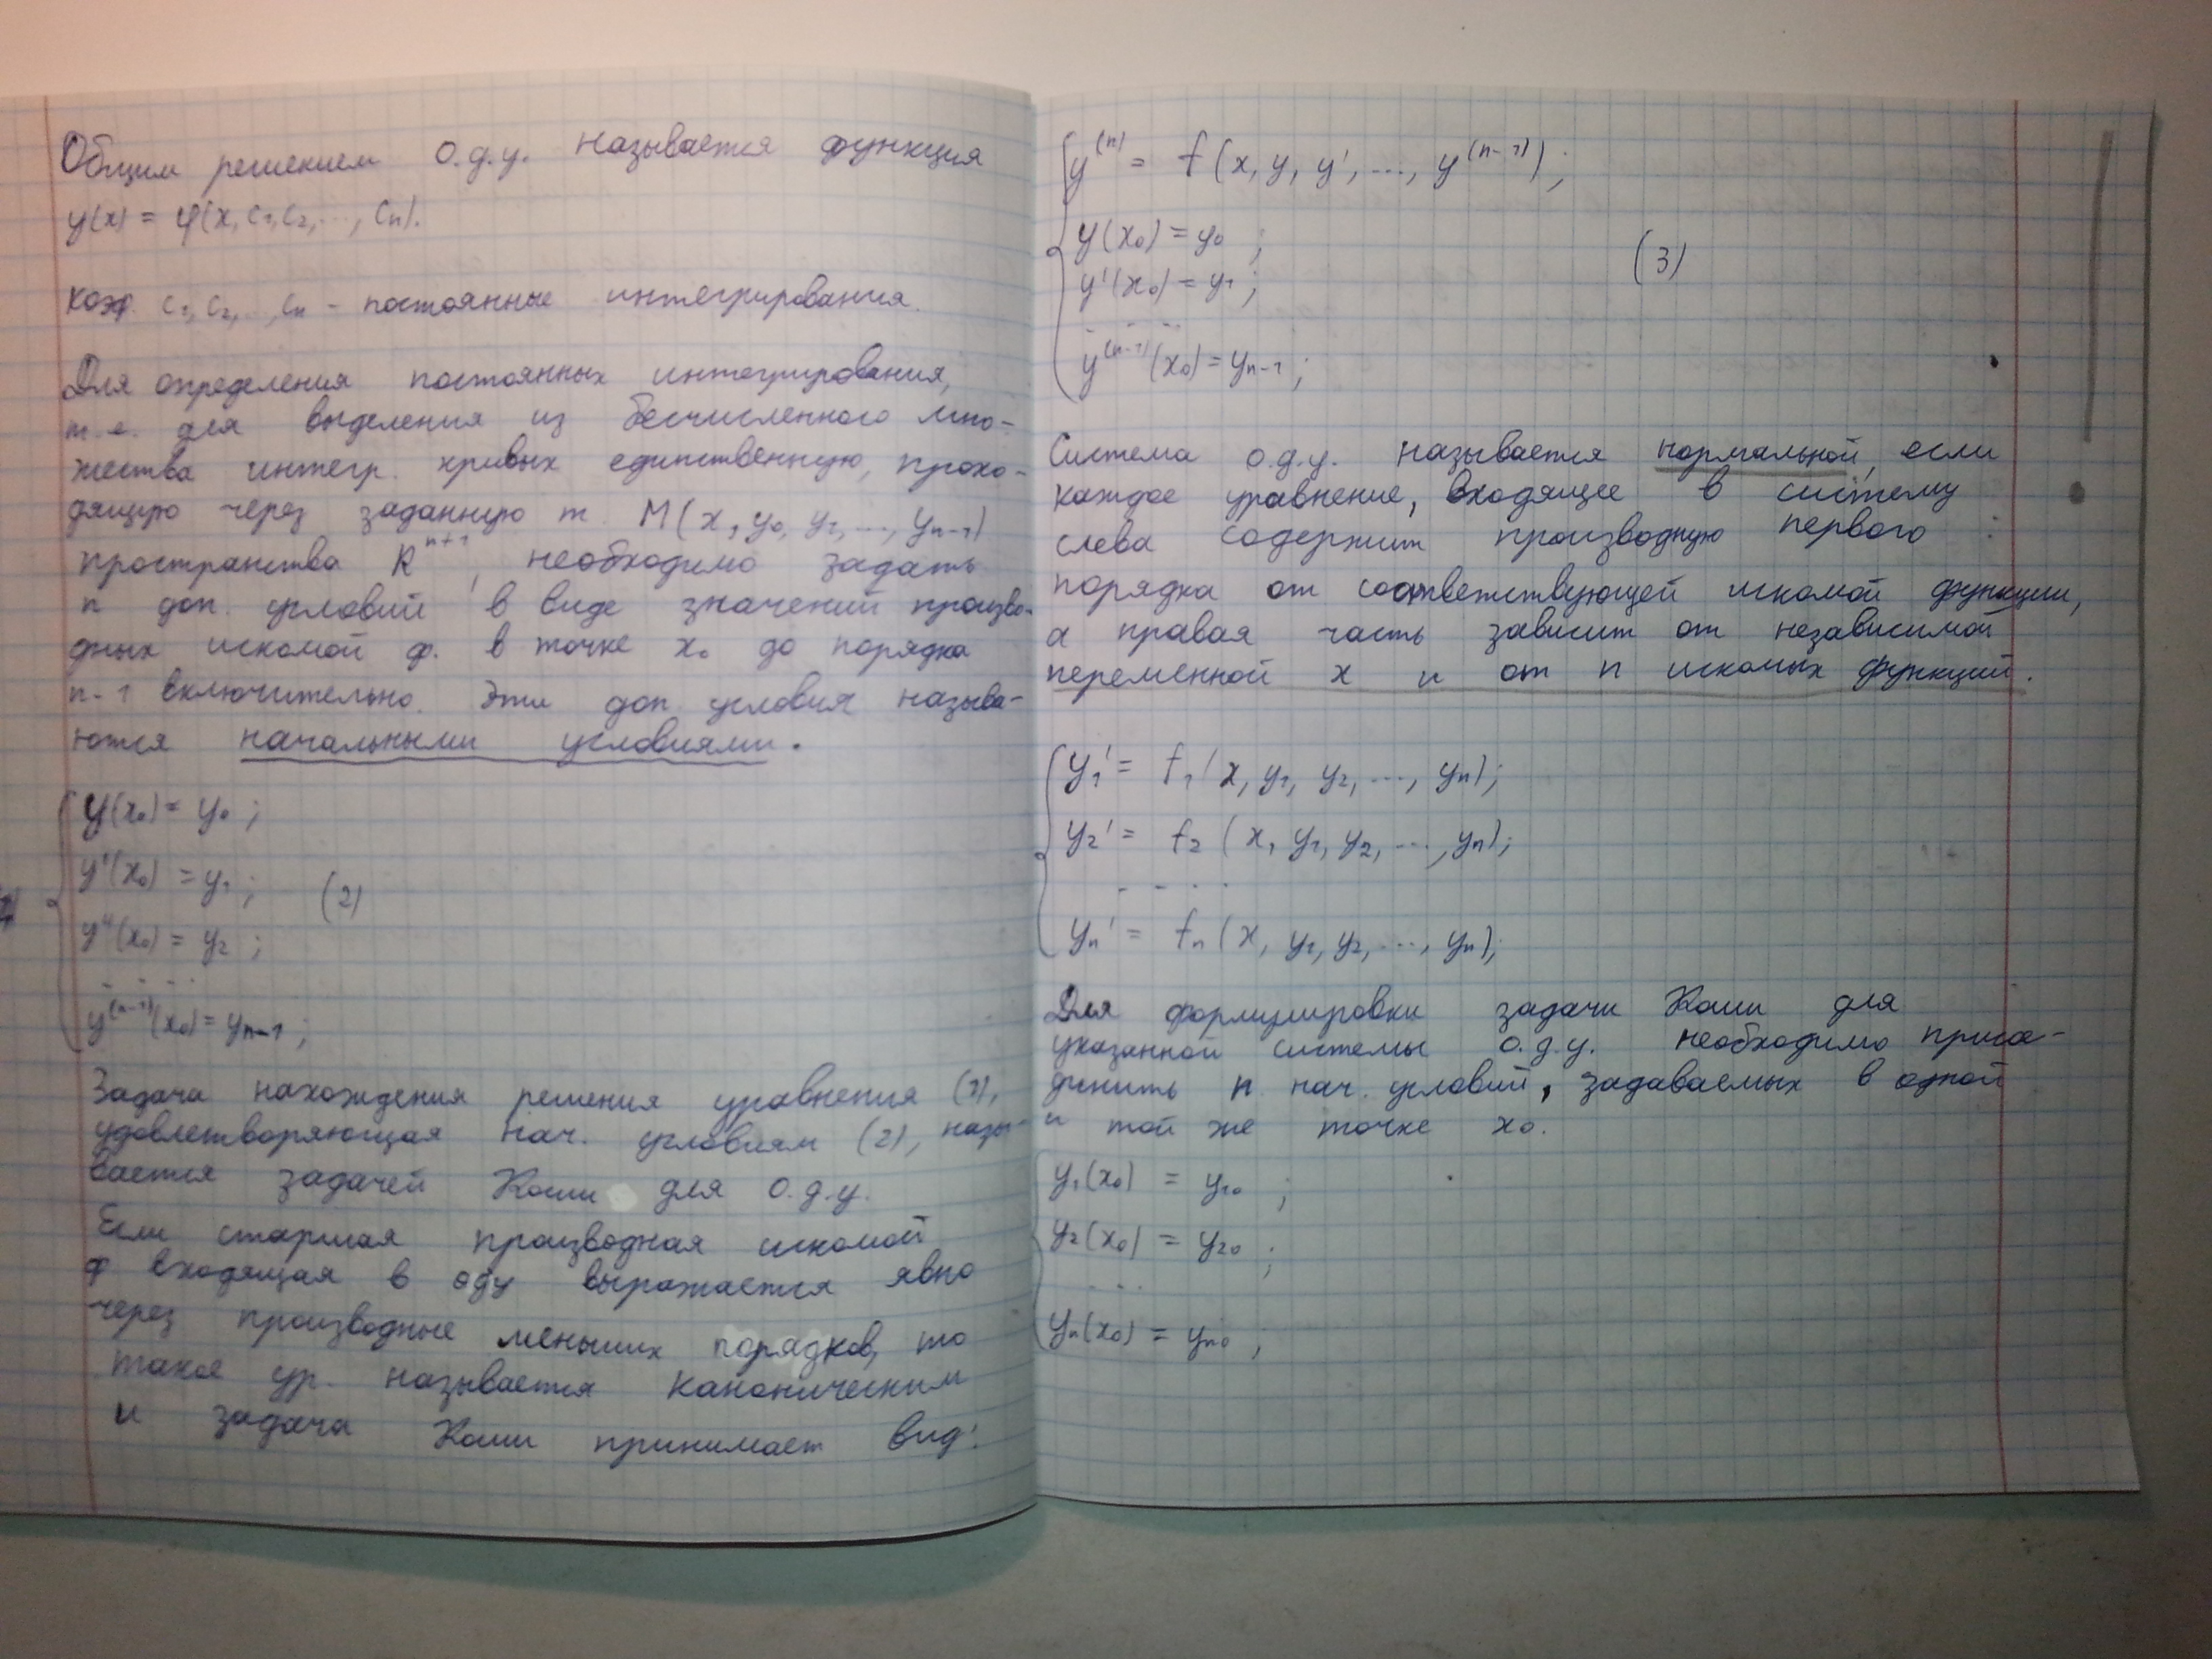 Общим решением о.д.у. называется функция
y(x) = φ(x, c₁, c₂, ..., cₙ).
коэф. c₁, c₂, ..., cₙ - постоянные интегрирования.
Для определения постоянных интегрирования,
т.е. для выделения из бесчисленного мно-
жества интегр. кривых единственную, прохо-
дящую через заданную т. M(x, y₀, y₁, ..., yₙ₋₁)
пространства Rⁿ⁺¹, необходимо задать
n доп. условий в виде значений произво-
дных искомой ф. в точке x₀ до порядка
n-1 включительно. Эти доп. условия называ-
ются начальными условиями.
y(x₀) = y₀ ;
y'(x₀) = y₁ ; (2)
y''(x₀) = y₂ ;
- - - -
y⁽ⁿ⁻¹⁾(x₀) = yₙ₋₁ ;
Задача нахождения решения уравнения (1),
удовлетворяющая нач. условиям (2), назы-
вается задачей Коши для о.д.у.
Если старшая производная искомой
ф входящая в оду выражается явно
через производные меньших порядков, то
такое ур. называется каноническим
и задача Коши принимает вид:
y⁽ⁿ⁾ = f(x, y, y', ..., y⁽ⁿ⁻¹⁾) ;
y(x₀) = y₀ ;
(3)
y'(x₀) = y₁ ;
- - -
y⁽ⁿ⁻¹⁾(x₀) = yₙ₋₁ ;
Система о.д.у. называется нормальной, если
каждое уравнение, входящее в систему
слева содержит производную первого
порядка от соответствующей искомой функции,
а правая часть зависит от независимой
переменной x и от n искомых функций.
y₁' = f₁(x, y₁, y₂, ..., yₙ);
y₂' = f₂(x, y₁, y₂, ..., yₙ);
- - . .
yₙ' = fₙ(x, y₁, y₂, ..., yₙ);
Для формулировки задачи Коши для
указанной системы о.д.у. необходимо присо-
динить n нач. условий, задаваемых в одной
и той же точке x₀.
y₁(x₀) = y₁₀ ;
y₂(x₀) = y₂₀ ;
. . .
yₙ(x₀) = yₙ₀ ;